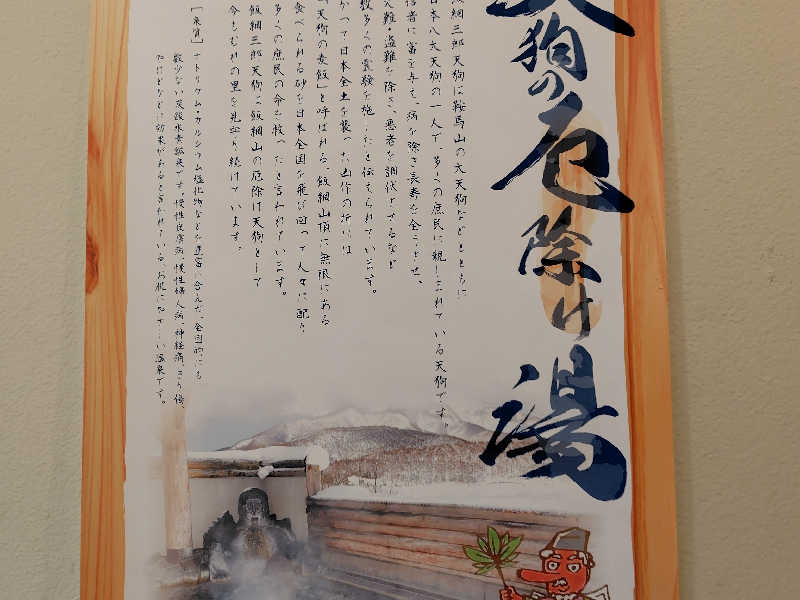 天狗の厄除け湯
飯綱三郎天狗は鞍馬山の大天狗などとともに
日本八大天狗の一人で、多くの庶民に親しまれている天狗です。
信者に富を与え、病を除き長寿を全うさせ、
火難・盗難を除き、悪者を調伏させるなど
数多くの霊験を施したと伝えられています。
かつて日本全土を襲った凶作の折には
「天狗の麦飯」と呼ばれる、飯綱山頂に無限にある
食べられる砂を日本全国を飛び回って人々に配り
多くの庶民の命を救ったと言われています。
飯綱三郎天狗は飯綱山の厄除け天狗として
今もむれの里を見守り続けています。
[泉質] ナトリウム・カルシウム塩化物などを豊富に含んだ、全国的にも
数少ない炭酸水素鉱泉です。慢性皮膚病、慢性婦人病、神経痛、きり傷、
やけどなどに効果があると言われている、お肌にやさしい温泉です。